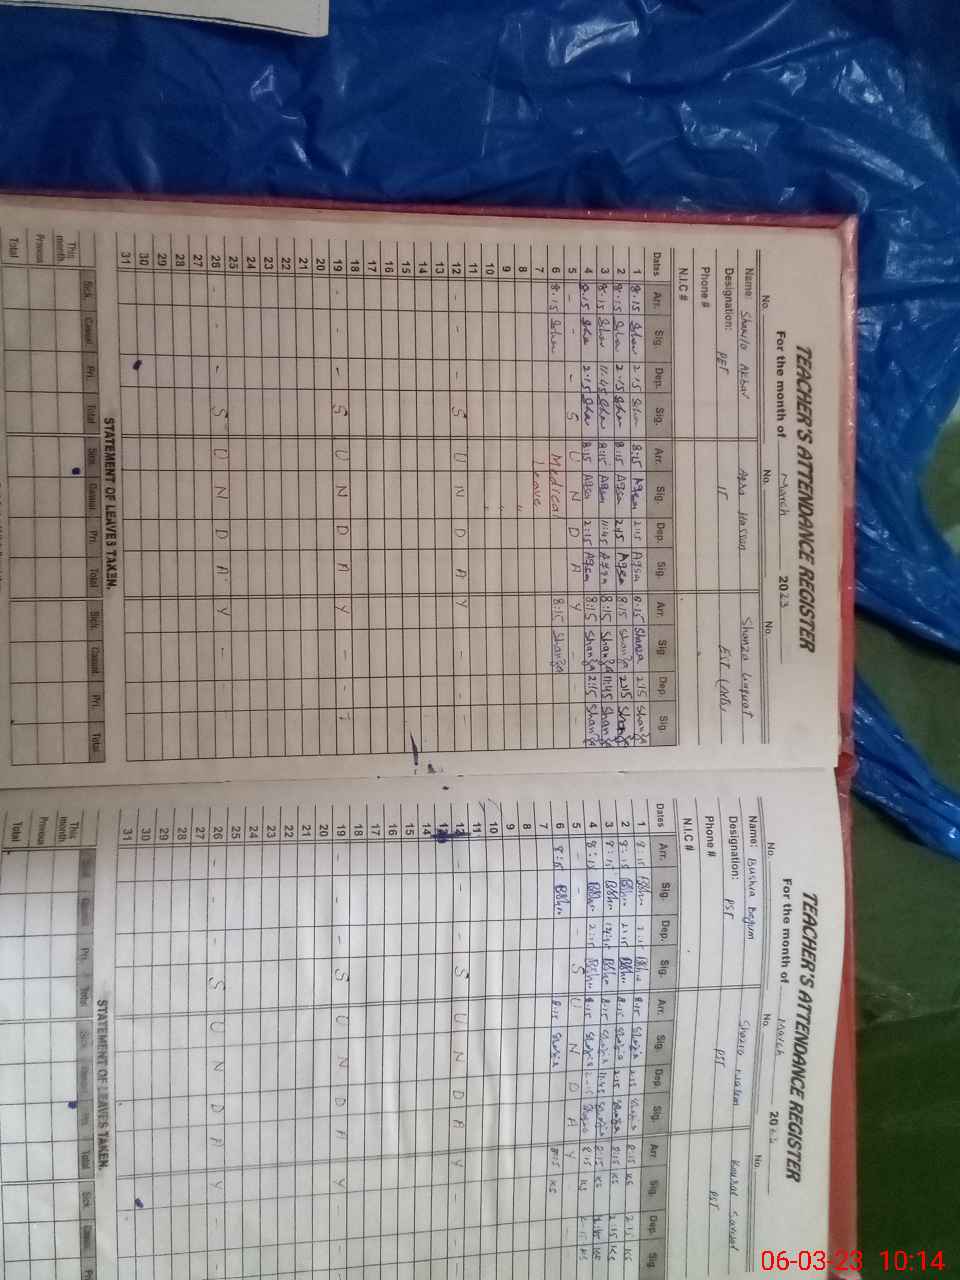 TEACHER'S ATTENDANCE REGISTER
For the month of March 2023
No. No. No.
Name: Shanila Akbar Aqsa Hassan Shanza Liaquat
Designation: PET IT EST
Phone #
N.I.C #
Dates Arr. Sig. Dep. Sig. Arr. Sig. Dep. Sig. Arr. Sig. Dep. Sig.
1 8:15 Shan 2:15 Shan 8:15 Aqsa 2:15 Aqsa 8:15 Shanza 2:15 Shanza
2 8:15 Shan 2:15 Shan 8:15 Aqsa 2:15 Aqsa 8:15 Shanza 2:15 Shanza
3 8:15 Shan 11:45 Shan 8:15 Aqsa 11:45 Aqsa 8:15 Shanza 11:45 Shanza
4 8:15 Shan 2:15 Shan 8:15 Aqsa 2:15 Aqsa 8:15 Shanza 2:15 Shanza
5 - - - S U N D A Y - - -
6 8:15 Shan Medical 8:15 Shanza
7 Leave
8 "
9
10
11
12 - - - S U N D A Y - - -
13
14
15
16
17
18
19 - - - S U N D A Y - - -
20
21
22
23
24
25
26 - - - S U N D A Y - -
27
28
29
30
31
STATEMENT OF LEAVES TAKEN.
Sick. Casual. Pri. Total Sick. Casual. Pri. Total Sick. Casual. Pri. Total
This month.
Previous
Total
TEACHER'S ATTENDANCE REGISTER
For the month of March 2023
No. No. No.
Name: Bushra Begum Shazia Kausar
Designation: PST PST PST
Phone #
N.I.C #
Dates Arr. Sig. Dep. Sig. Arr. Sig. Dep. Sig. Arr. Sig. Dep. Sig.
1 8:15 Bshr 2:15 Bshr 8:15 Shazia 2:15 Shazia 8:15 KS 2:15 KS
2 8:15 Bshr 2:15 Bshr 8:15 Shazia 2:15 Shazia 8:15 KS 2:15 KS
3 8:15 Bshr Bshr 8:15 Shazia 11:45 Shazia 8:15 KS KS
4 8:15 Bshr 2:15 Bshr 8:15 Shazia 2:15 Shazia 8:15 KS 2:15 KS
5 - - - S U N D A Y
6 8:15 Bshr 8:15 Shazia 8:15 KS
7
8
9
10
11
12 - - - S U N D A Y - -
14
15
16
17
18
19 - - - S U N D A Y - -
20
21
22
23
24
25
26 - - - S U N D A Y - -
27
28
29
30
31
STATEMENT OF LEAVES TAKEN.
Pri. Total Sick. Pri. Total Sick.
This month.
Previous
Total
06-03-23 10:14